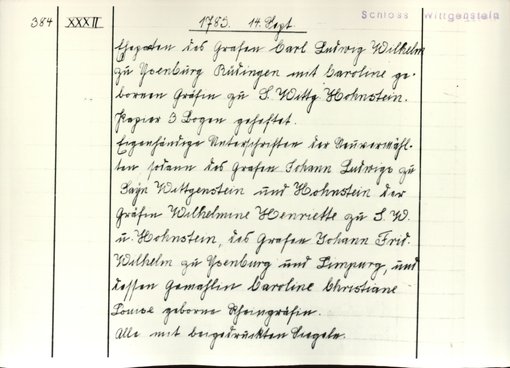 Schloss Wittgenstein
384 XXXII 1783. 14. Sept.
Ehepakten des Grafen Carl Ludwig Wilhelm
zu Ysenburg Büdingen mit Caroline ge-
bornen Gräfin zu S. Wittg Hohnstein.
Papier 3 Bogen geheftet.
Eigenhändige Unterschriften der Neuvermähl-
ten, sodann des Grafen Johann Ludwigs zu
Sayn Wittgenstein und Hohnstein der
Gräfin Wilhelmine Henriette zu S. W.
u. Hohnstein, des Grafen Johann Frid.
Wilhelm zu Ysenburg und Limpurg, und
dessen Gemahlin Caroline Christiane
Louise geborne Rheingräfin.
Alle mit beigedruckten Siegeln.